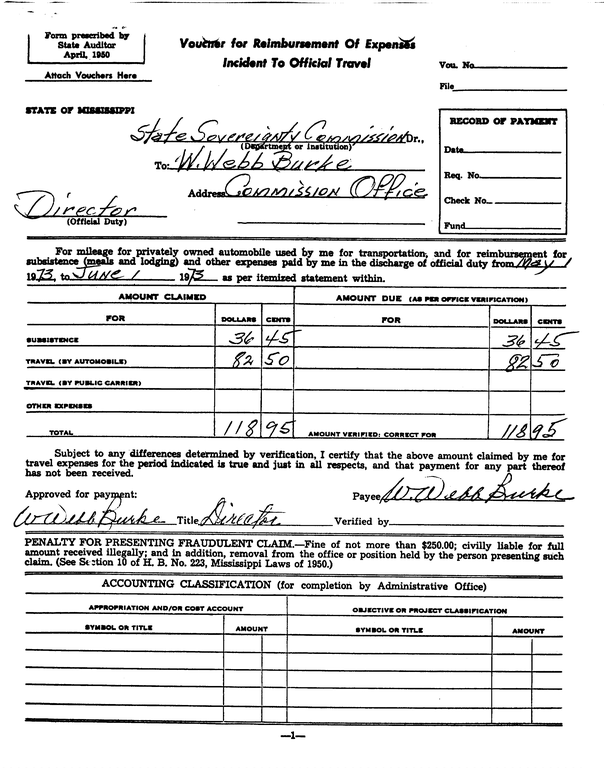 Form prescribed by
State Auditor
April, 1950
Attach Vouchers Here
Voucher for Reimbursement Of Expenses
Incident To Official Travel
Vou. No.
File
STATE OF MISSISSIPPI
State Sovereignty Commission Dr.,
(Department or Institution)
To: W. Webb Burke
Address Commission Office
Director
(Official Duty)
RECORD OF PAYMENT
Date
Req. No.
Check No.
Fund
For mileage for privately owned automobile used by me for transportation, and for reimbursement for
subsistence (meals and lodging) and other expenses paid by me in the discharge of official duty from May 1
1973, to June 1 1973 as per itemized statement within.
AMOUNT CLAIMED AMOUNT DUE (AS PER OFFICE VERIFICATION)
FOR DOLLARS CENTS FOR DOLLARS CENTS
SUBSISTENCE 36 45 36 45
TRAVEL (BY AUTOMOBILE) 82 50 82 50
TRAVEL (BY PUBLIC CARRIER)
OTHER EXPENSES
TOTAL 118 95 AMOUNT VERIFIED: CORRECT FOR 118 95
Subject to any differences determined by verification, I certify that the above amount claimed by me for
travel expenses for the period indicated is true and just in all respects, and that payment for any part thereof
has not been received.
Approved for payment: Payee W. Webb Burke
W Webb Burke Title Director Verified by
PENALTY FOR PRESENTING FRAUDULENT CLAIM.—Fine of not more than $250.00; civilly liable for full
amount received illegally; and in addition, removal from the office or position held by the person presenting such
claim. (See Section 10 of H. B. No. 223, Mississippi Laws of 1950.)
ACCOUNTING CLASSIFICATION (for completion by Administrative Office)
APPROPRIATION AND/OR COST ACCOUNT OBJECTIVE OR PROJECT CLASSIFICATION
SYMBOL OR TITLE AMOUNT SYMBOL OR TITLE AMOUNT
—1—